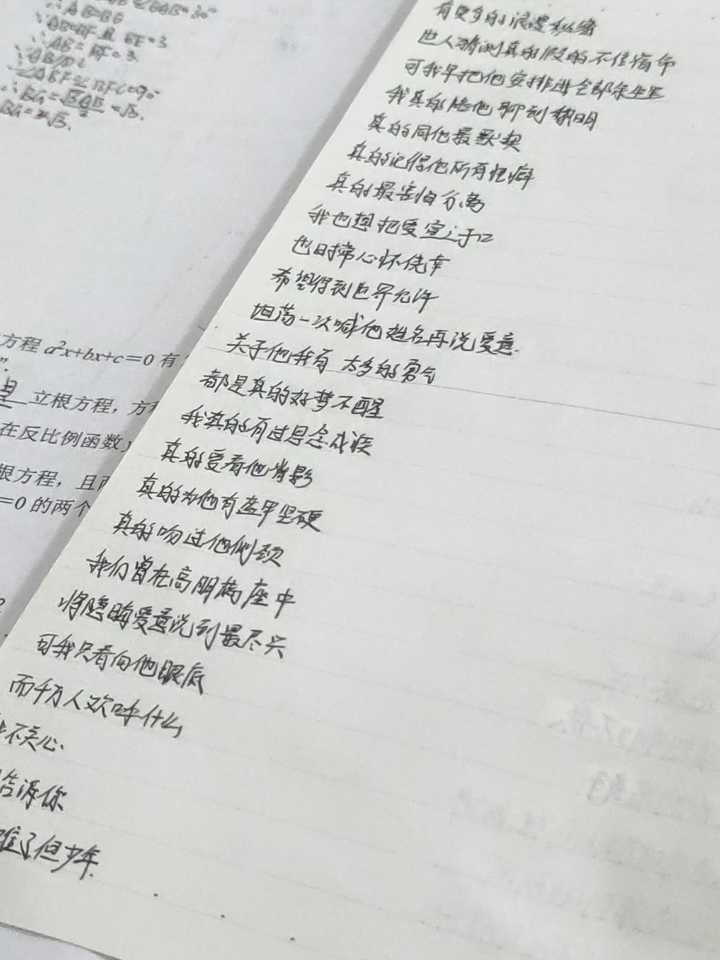 ∴AB=BG
∴AB=BF且 EF=3
∴AB=EF=3
方程 a²x+bx+c=0 有
立根方程，方
在反比例函数
根方程，且
=0 的两个
有更多的浪漫秘密
世人猜测真的假的不信宿命
可我早把他安排进全部余生里
我真的陪他聊到黎明
真的同他最默契
真的记得他所有怪癖
真的最害怕分离
我也想把爱宣之于口
也日常心怀侥幸
希望得到世界允许
坦荡一次喊他姓名再说爱意
关于他我有太多的勇气
都是真的好梦不醒
我真的有过思念成疾
真的爱看他背影
真的为他有盔甲坚硬
真的吻过他侧颈
我们曾在高朋满座中
将隐晦爱意说到最尽兴
可我只看向他眼底
而千万人欢呼什么
不关心
告诉你
难了但少年